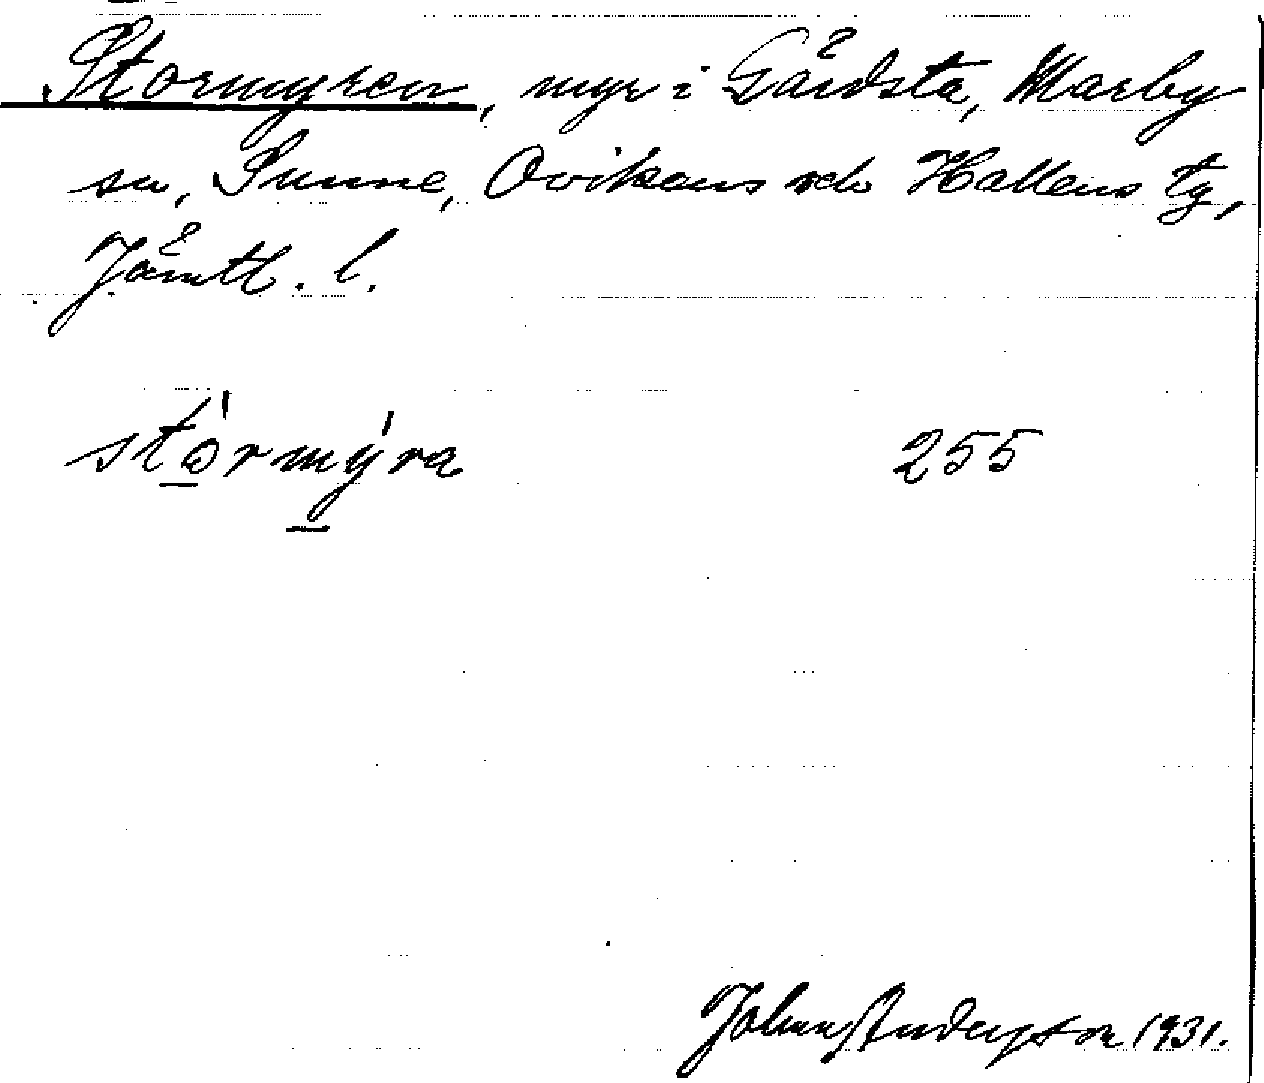 Stormyren, myr i Gärdsta, Marby
sn, Sunne, Ovikens och Hallens tg,
Jämtl. l.
stò̠rmý̠ra 255
Johan Anderson 1931.